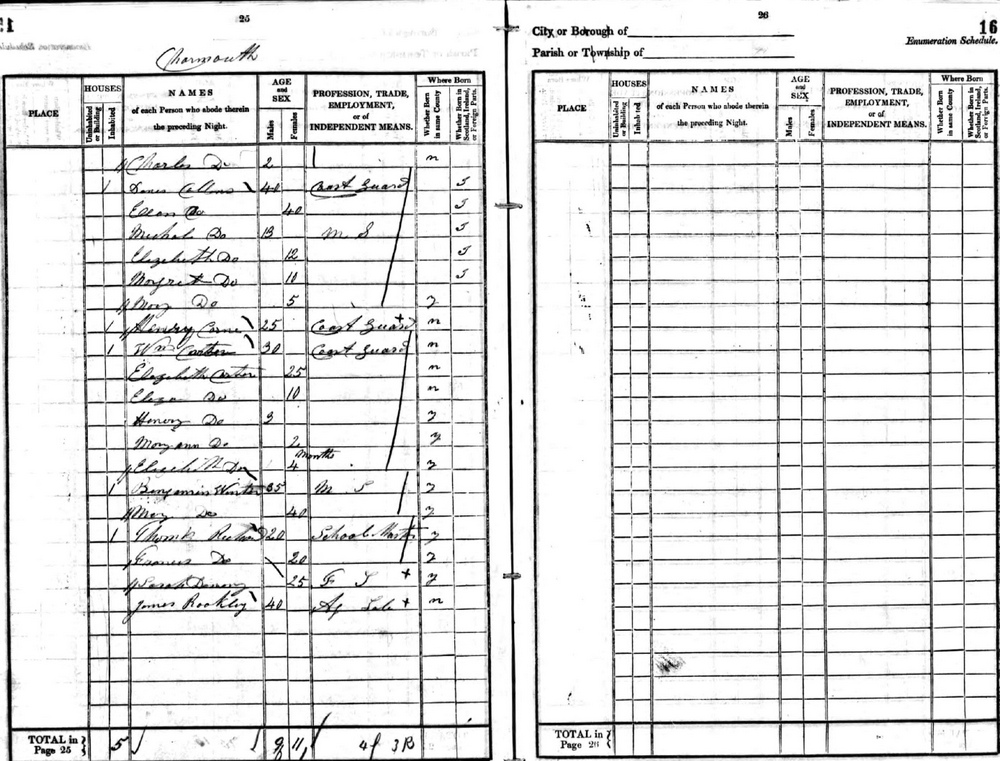 25
Charmouth
PLACE
HOUSES
Uninhabited or Building
Inhabited
NAMES
of each Person who abode therein
the preceding Night.
AGE
and
SEX
Males
Females
PROFESSION, TRADE,
EMPLOYMENT,
or of
INDEPENDENT MEANS.
Where Born
Whether Born in same County
Whether Born in Scotland, Ireland, or Foreign Parts.
Charles Do 2 n
1 40 Coast Guard J
Do 40 J
Do 13 M S J
Elizabeth Do 12 J
Margret Do 10 J
Mary Do 5 y
1 Henry 25 Coast Guard n
1 Wm Carter 30 Coast Guard n
Elizabeth Carter 25 n
Eliza Do 10 n
Henry Do 3 y
Mary ann Do 2 y
Elizabeth Do 4 months y
1 Benjamin Winter 35 M S y
Mary Do 40 y
1 Thomas 20 School Master y
Frances Do 20 y
Sarah 25 F S y
James 40 Ag Lab n
TOTAL in
Page 25
5 9 11 4f 3B
26
City or Borough of
Parish or Township of
16
Enumeration Schedule.
PLACE
HOUSES
Uninhabited or Building
Inhabited
NAMES
of each Person who abode therein
the preceding Night.
AGE
and
SEX
Males
Females
PROFESSION, TRADE,
EMPLOYMENT,
or of
INDEPENDENT MEANS.
Where Born
Whether Born in same County
Whether Born in Scotland, Ireland, or Foreign Parts.
TOTAL in
Page 26